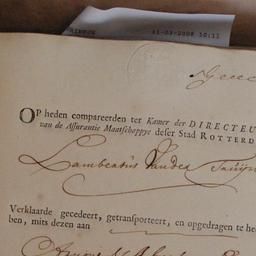 01-03-2008 10:11
OP heden compareerden ter Kamer der DIRECTEU
van de Assurantie Maatschappye deser Stad ROTTERD
Lambertus Vander
Verklaarde gecedeert, getransporteert, en opgedragen te he
ben, mits dezen aan